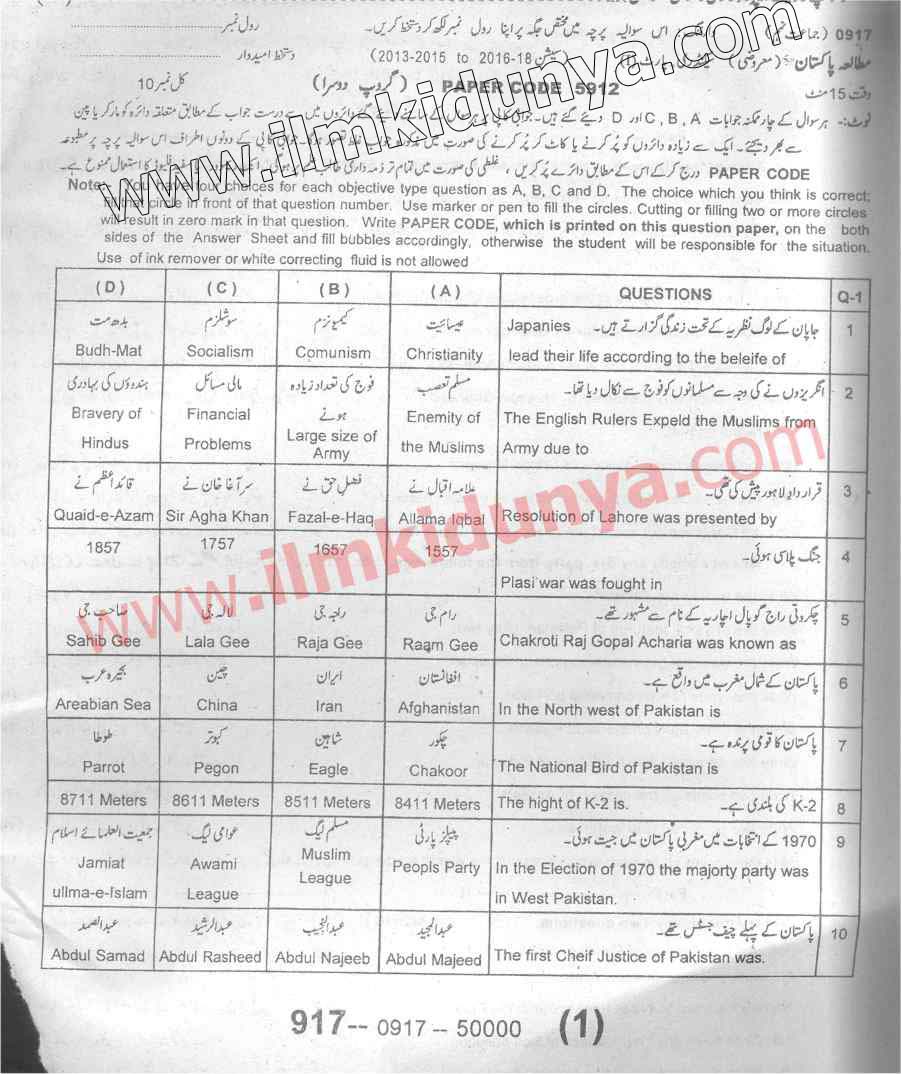 0917 (جماعت نہم) اس سوالیہ پرچہ میں مختص جگہ پر اپنا رول نمبر لکھ کر دستخط کریں۔ رول نمبر
مطالعہ پاکستان (معروضی) (سیشن 18-2016 to 2013-2015) دستخط امیدوار
وقت 15 منٹ PAPER CODE 5912 (گروپ دوسرا) کل نمبر 10
نوٹ:۔ ہر سوال کے چار ممکنہ جوابات C, B, A اور D دیئے گئے ہیں۔ میں سے درست جواب کے مطابق متعلقہ دائرہ کو مارکر یا پین
سے بھر دیجئے۔ ایک سے زیادہ دائروں کو پُر کرنے یا کاٹ کر پُر کرنے کی صورت میں کے دونوں اطراف اس سوالیہ پرچہ پر مطبوعہ
PAPER CODE درج کر کے اس کے مطابق دائرے پُر کریں، غلطی کی صورت میں تمام تر ذمہ داری کا استعمال ممنوع ہے۔
Note:- You have four choices for each objective type question as A, B, C and D. The choice which you think is correct;
fill that circle in front of that question number. Use marker or pen to fill the circles. Cutting or filling two or more circles
will result in zero mark in that question. Write PAPER CODE, which is printed on this question paper, on the both
sides of the Answer Sheet and fill bubbles accordingly, otherwise the student will be responsible for the situation.
Use of ink remover or white correcting fluid is not allowed
(D) (C) (B) (A) QUESTIONS Q-1
بدھ مت سوشلزم کمیونزم عیسائیت جاپان کے لوگ نظریہ کے تحت زندگی گزارتے ہیں۔ Japanies 1
Budh-Mat Socialism Comunism Christianity lead their life according to the beleife of
ہندوؤں کی بہادری مالی مسائل فوج کی تعداد زیادہ ہونے مسلم تعصب انگریزوں نے کی وجہ سے مسلمانوں کو فوج سے نکال دیا تھا۔ 2
Bravery of Financial Large size of Enemity of The English Rulers Expeld the Muslims from
Hindus Problems Army the Muslims Army due to
قائداعظم نے سر آغا خان نے فضل حق نے علامہ اقبال نے قرارداد لاہور پیش کی تھی۔ 3
Quaid-e-Azam Sir Agha Khan Fazal-e-Haq Allama Iqbal Resolution of Lahore was presented by
1857 1757 1657 1557 جنگ پلاسی ہوئی۔ 4
Plasi war was fought in
صاحب جی لالہ جی راجہ جی رام جی چکروتی راج گوپال اچاریہ کے نام سے مشہور تھے۔ 5
Sahib Gee Lala Gee Raja Gee Raam Gee Chakroti Raj Gopal Acharia was known as
بحیرہ عرب چین ایران افغانستان پاکستان کے شمال مغرب میں واقع ہے۔ 6
Areabian Sea China Iran Afghanistan In the North west of Pakistan is
طوطا کبوتر شاہین چکور پاکستان کا قومی پرندہ ہے۔ 7
Parrot Pegon Eagle Chakoor The National Bird of Pakistan is
8711 Meters 8611 Meters 8511 Meters 8411 Meters The hight of K-2 is. K-2 کی بلندی ہے۔ 8
جمعیت العلمائے اسلام عوامی لیگ مسلم لیگ پیپلز پارٹی 1970 کے انتخابات میں مغربی پاکستان میں جیت ہوئی۔ 9
Jamiat Awami Muslim Peopls Party In the Election of 1970 the majorty party was
ullma-e-Islam League League in West Pakistan.
عبدالصمد عبدالرشید عبدالنجیب عبدالمجید پاکستان کے پہلے چیف جسٹس تھے۔ 10
Abdul Samad Abdul Rasheed Abdul Najeeb Abdul Majeed The first Cheif Justice of Pakistan was.
917-- 0917 -- 50000 (1)
www.ilmkidunya.com
www.ilmkidunya.com